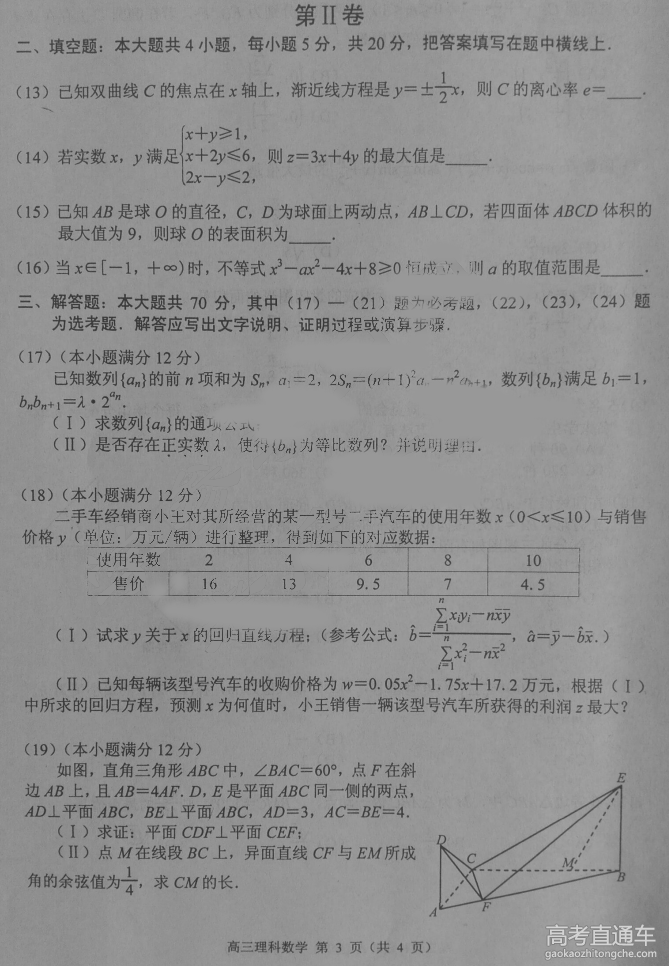 第Ⅱ卷
二、填空题：本大题共4小题，每小题5分，共20分，把答案填写在题中横线上．
(13) 已知双曲线 C 的焦点在 x 轴上，渐近线方程是 y=±1/2x，则 C 的离心率 e=____．
(14) 若实数 x，y 满足{x+y≥1，
x+2y≤6，则 z=3x+4y 的最大值是____．
2x-y≤2，
(15) 已知 AB 是球 O 的直径，C，D 为球面上两动点，AB⊥CD，若四面体 ABCD 体积的
最大值为9，则球 O 的表面积为____．
(16) 当 x∈[-1，+∞)时，不等式 x³-ax²-4x+8≥0 恒成立，则 a 的取值范围是____．
三、解答题：本大题共 70 分，其中（17）—（21）题为必考题，（22），（23），（24）题
为选考题．解答应写出文字说明、证明过程或演算步骤．
(17)（本小题满分12分）
已知数列{aₙ}的前 n 项和为 Sₙ，a₁=2，2Sₙ=(n+1)²aₙ-n²aₙ₊₁，数列{bₙ}满足 b₁=1，
bₙbₙ₊₁=λ·2^(aₙ)．
（Ⅰ）求数列{aₙ}的通项公式；
（Ⅱ）是否存在正实数 λ，使得{bₙ}为等比数列？并说明理由．
(18)（本小题满分12分）
二手车经销商小王对其所经营的某一型号二手汽车的使用年数 x（0<x≤10）与销售
价格 y（单位：万元/辆）进行整理，得到如下的对应数据：
使用年数 2 4 6 8 10
售价 16 13 9.5 7 4.5
（Ⅰ）试求 y 关于 x 的回归直线方程；（参考公式：b̂=(∑ᵢ₌₁ⁿxᵢyᵢ-nx̄ȳ)/(∑ᵢ₌₁ⁿxᵢ²-nx̄²)，â=ȳ-b̂x̄．）
（Ⅱ）已知每辆该型号汽车的收购价格为 w=0.05x²-1.75x+17.2 万元，根据（Ⅰ）
中所求的回归方程，预测 x 为何值时，小王销售一辆该型号汽车所获得的利润 z 最大？
(19)（本小题满分12分）
如图，直角三角形 ABC 中，∠BAC=60°，点 F 在斜
边 AB 上，且 AB=4AF．D，E 是平面 ABC 同一侧的两点，
AD⊥平面 ABC，BE⊥平面 ABC，AD=3，AC=BE=4．
（Ⅰ）求证：平面 CDF⊥平面 CEF；
（Ⅱ）点 M 在线段 BC 上，异面直线 CF 与 EM 所成
角的余弦值为1/4，求 CM 的长．
E
D
C
M
B
A
F
高三理科数学 第 3 页（共 4 页）
高考直通车
gaokaozhitongche.com